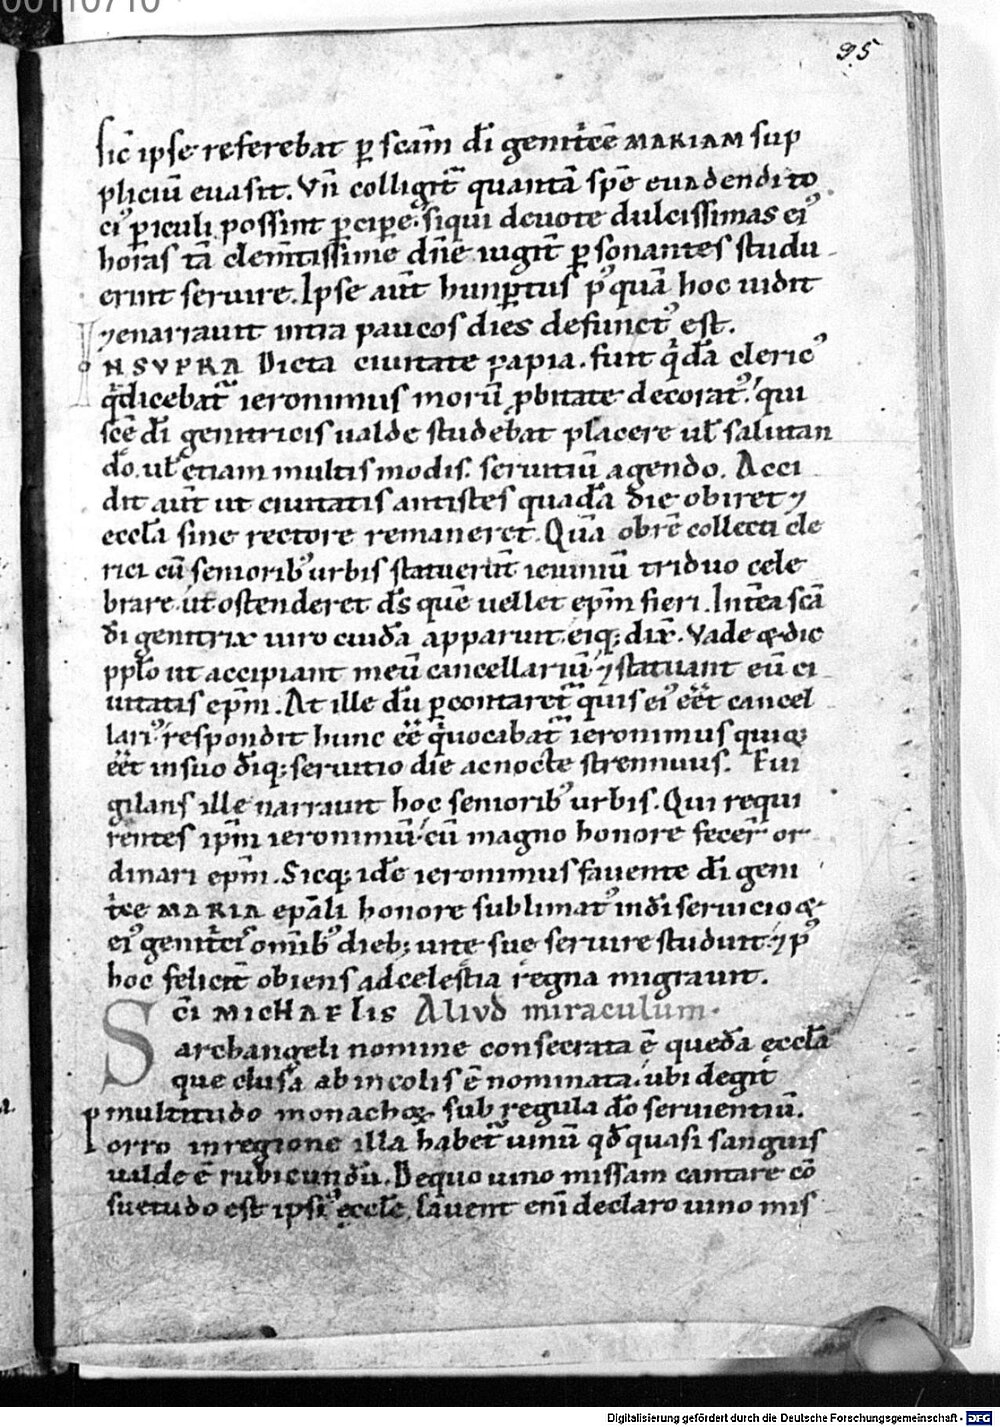 00110710
95
sic̄ ipse referebat ꝑ scām dī genit͛cē MARIAM sup
pliciū euasit. Vn̄ colligit᷑ quantā spē euadendi to
ciꝰ ꝑiculi possint ꝑciꝑe. siqui deuote dulcissimas eiꝰ
horas tā clem̄tissime dn̄e uigit̄ ꝑsonantes studu
erint seruire. Ipse aūt hunꝑtus pꝰquā hoc uidit
⁊enarrauit intra paucos dies defunctꝰ est.
INSVPRA Dicta ciuitate papia. fuit qͥdā clericꝰ
qͥ dicebat᷑ ieronimus morū ꝓbitate decoratꝰ. qui
scē dī genitricis ualde studebat placere ul̄ salutan
do. ul̄ etiam multis modis seruitiū agendo. Acci
dit aūt ut ciuitatis antistes quadā die obiret ⁊
eccl̄a sine rectore remaneret. Quā obrē collecti cle
rici cū senioribꝰ urbis statuerūt ieiuniū triduo cele
brare. ut ostenderet d̄s quē uellet ep̄m fieri. Int̄ea scā
dī genitrix uiro cuidā apparuit. eiq; dix̄. Vade & dic
pplo ut accipiant meū cancellariū. ⁊ statuant eū ci
uitatis ep̄m. At ille dū ꝑcontaret᷑ quis eiꝰ eēt cancel
lariꝰ. respondit hunc eē qͥ uocabat᷑ ieronimus quiq;
eēt in suo dīq; seruitio die ac nocte strennuus. Eui
gilans ille narrauit hoc senioribꝰ urbis. Qui requi
rentes ip̄m ieronimū. cū magno honore fecer̄ or
dinari ep̄m. Sicq; idē ieronimus fauente dī geni
t͛ce MARIA ep̄ali honore sublimatꝰ in dī seruicio &
eiꝰ genit͛cis om̄ibꝰ dieb; uite sue seruire studuit. ⁊ pꝰ
hoc felicit̄ obiens ad celestia regna migrauit.
SCI MICHAELIS Aliud miraculum.
archangeli nomine consecrata ē quedā eccl̄a
que clusa ab incolis ē nominata. ubi degit
multitudo monachoꝝ sub regula dō seruientiū.
Porro in regione illa habet᷑ uinū qd̄ quasi sanguis
ualde ē rubicundū. De quo uino missam cantare cō
suetudo est ipsiꝰ eccl̄e. sauent enī de claro uino mis
Digitalisierung gefördert durch die Deutsche Forschungsgemeinschaft - DFG